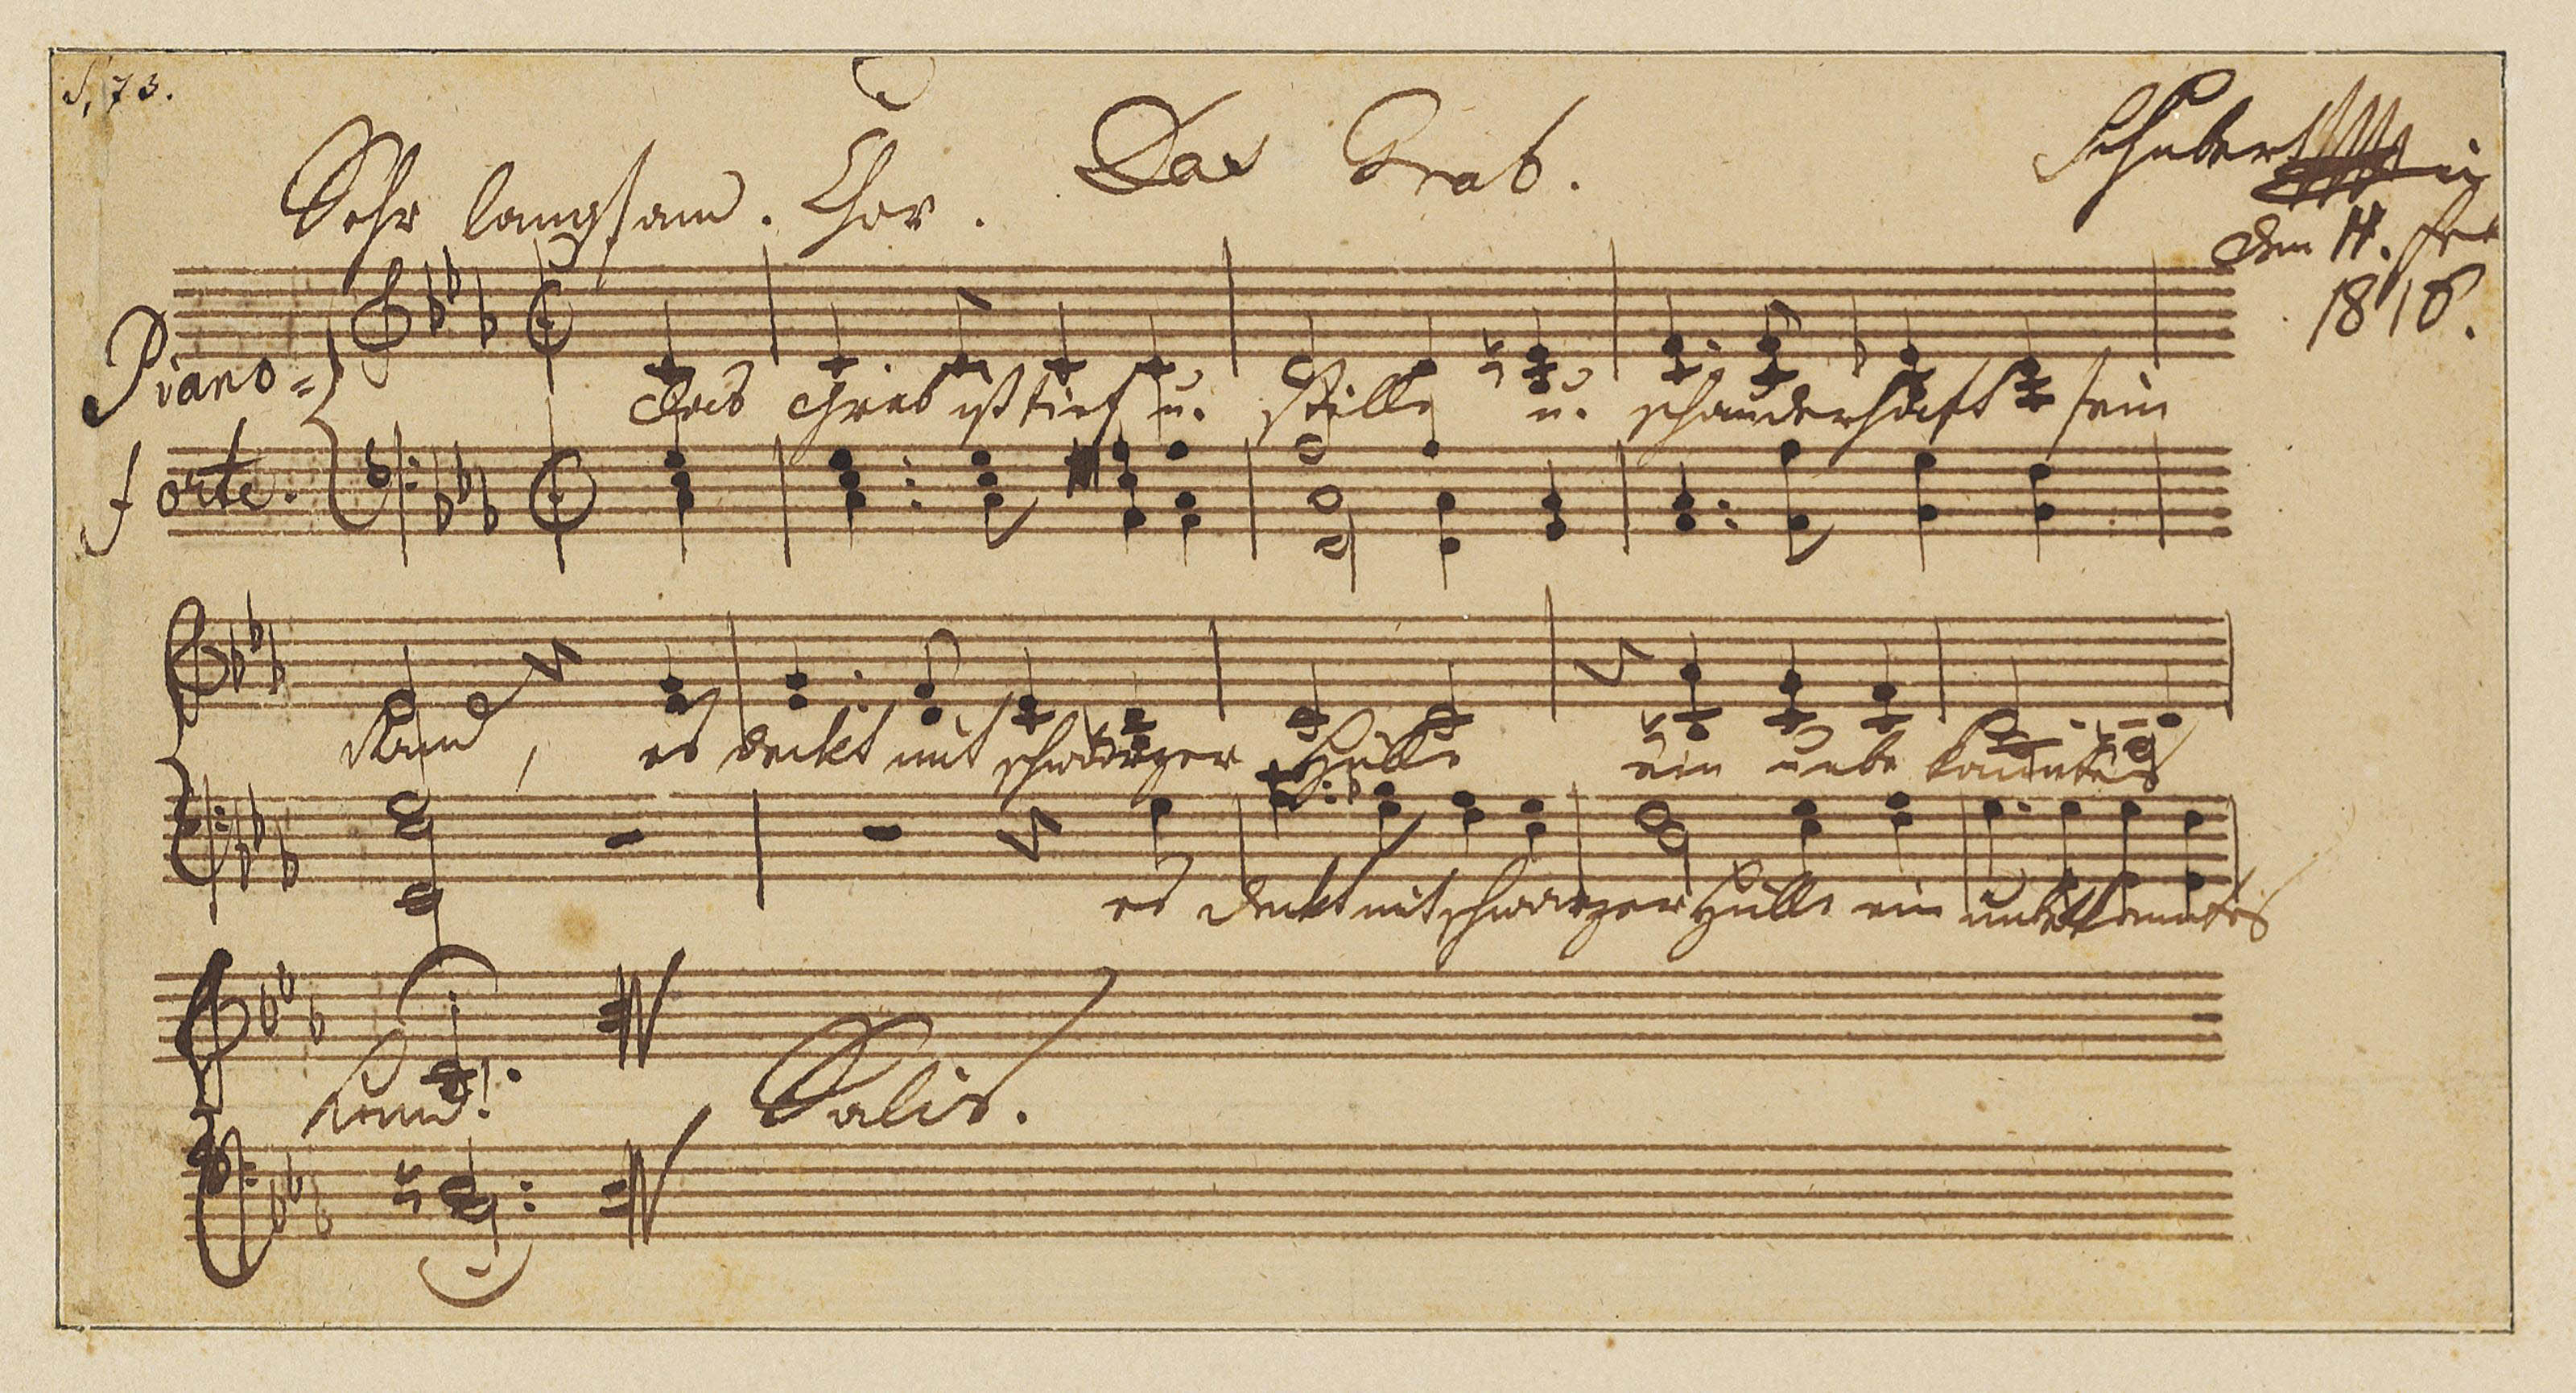 S. 73.
Sehr langsam. Chor. Das Grab. Schubert
den 11. Fe
1816.
Piano=
forte.
Das Grab ist tief u. stille u. schauderhaft sein
Rand, es deckt mit schwarzer Hülle ein unbekanntes
es deckt mit schwarzer Hülle ein unbekanntes
Land!
Salis.